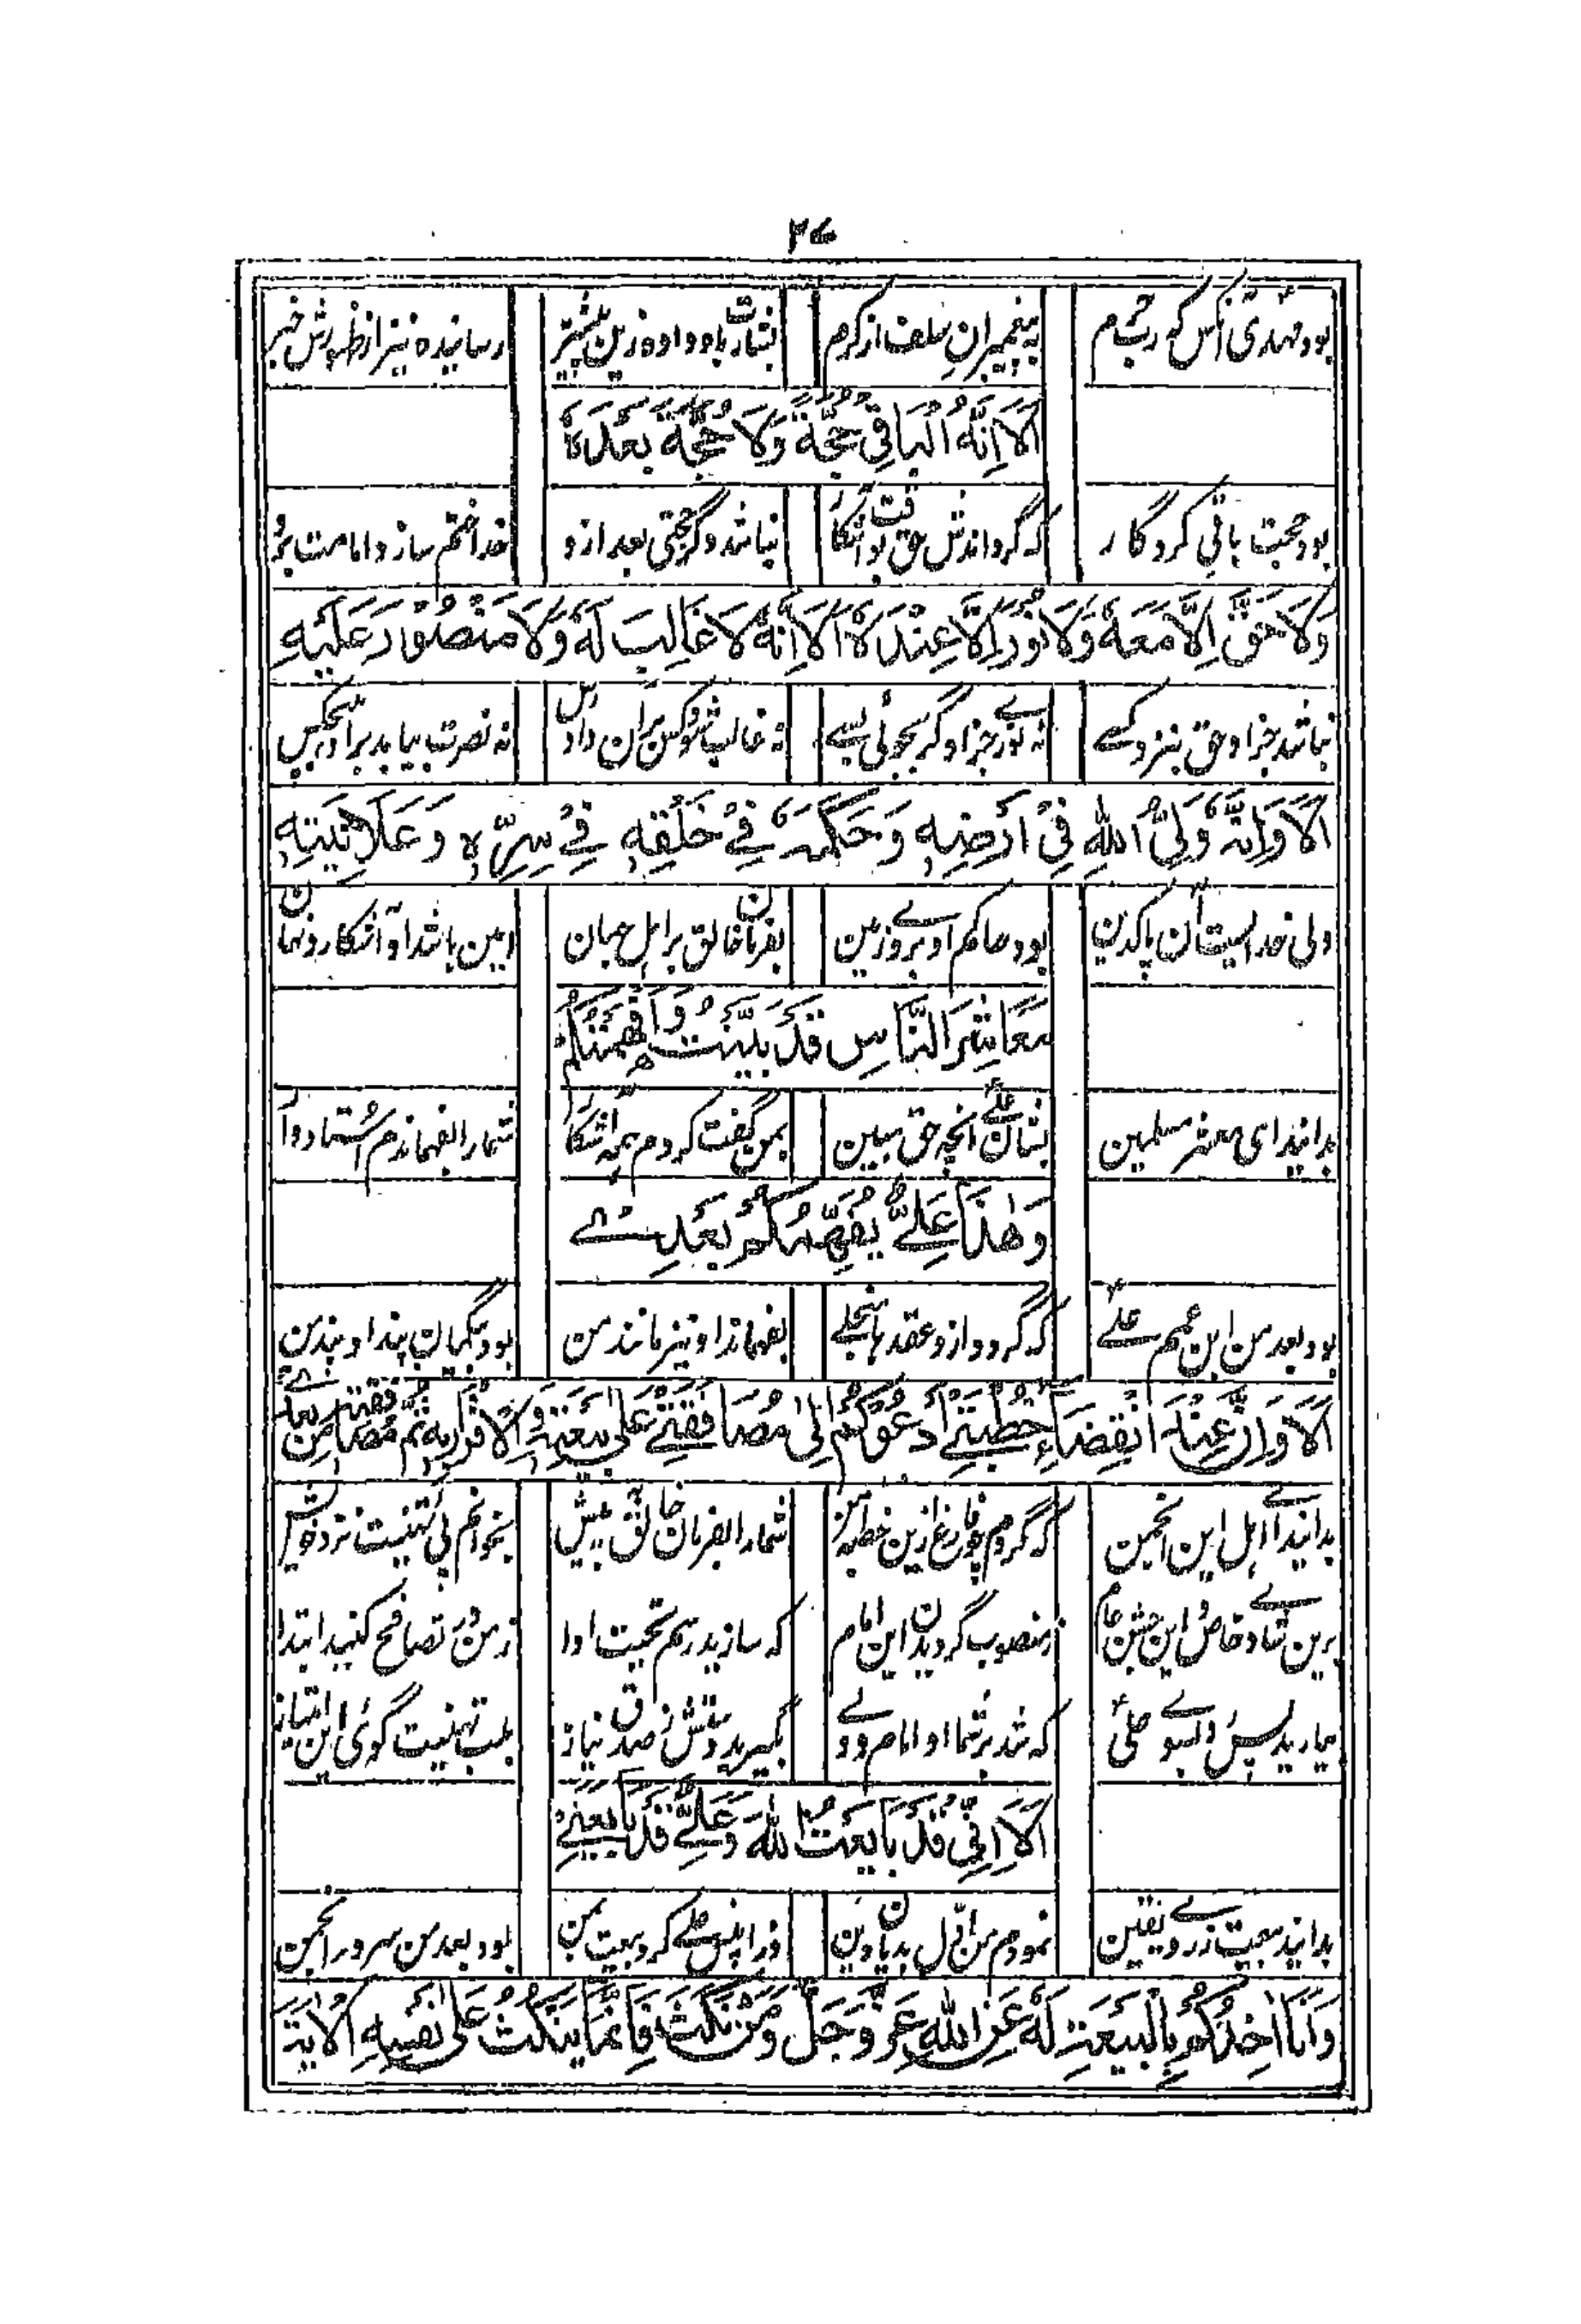 ۲۷
بود مهدی آنکس که رب حشم به پیغمبران سلف از کرم بشارت باو داده زین پیشتر رسانیده نیز از ظهورش خبر
اَلَا اِنَّهُ الْبَاقِیْ حُجَّةً وَلَا حُجَّةَ بَعْدَهٗ
بود حجت باقی کردگار که گرداندش حق بوقت آشکار نباشد دگر حجتی بعد ازو خدا ختم سازد امامت برو
وَلَا حَقَّ اِلَّا مَعَهٗ وَلَا نُوْرَ اِلَّا عِنْدَهٗ اَلَا اِنَّهٗ لَا غَالِبَ لَهٗ وَلَا مَنْصُوْرَ عَلَیْهِ
نباشد جز او حق بنزد کسے نه نورے جز او گر بجوئی بسے نه غالب شود کس بران دادرس نه نصرت بیابد برو هیچکس
اَلَا وَاِنَّهٗ وَلِیُّ اللهِ فِیْ اَرْضِهٖ وَحَکَمُهٗ فِیْ خَلْقِهٖ فِیْ سِرِّهٖ وَعَلَانِیَتِهٖ
ولی خداست آن پاکدین بود حاکم او بروے زمین بفرمان خالق بر اهل جهان امین باشد او آشکار و نهان
مَعَاشِرَ النَّاسِ قَدْ بَیَّنْتُ وَاَفْهَمْتُکُمْ
بدانید ای معشر مسلمین بشان علی آنچه حق مبین بمن گفت کردم همه آشکار شما را بفهماندم استادوار
وَهٰذَا عَلِیٌّ یُفَهِّمُکُمْ بَعْدِیْ
بود بعد من ابن عمم علی که گردد ازو عقدها منجلے بفهماند او نیز مانند من بود بیگمان پند او پند من
اَلَا وَاِنَّ عِنْدَ انْقِضَاءِ خُطْبَتِیْ اَدْعُوْکُمْ اِلٰی مُصَافَقَتِیْ عَلٰی بَیْعَتِهٖ وَالْاِقْرَارِ بِهٖ ثُمَّ مُصَافَقَتِهٖ مِنْ بَعْدِیْ
بدانید اے اهل این انجمن که گردم چو فارغ ازین خطبه من شما را بفرمان خالق به پیش بخوانم پی تهنیت نزد خویش
برین شادے خاص و این جشن عام ز منصوب گردیدن این امام که سازید رسم تحیت ادا ز من و تصافح کنید ابتدا
بیارید پس رو بسوے علی که شد بر شما او امام و ولے بگیرید دستش ز صدق نیاز بلب تهنیت گوی این امتیاز
اَلَا اِنِّیْ قَدْ بَایَعْتُ اللهَ وَعَلِیٌّ قَدْ بَایَعَنِیْ
بدانید بیعت ز روے یقین نمودم من اول بدیان دین ز پس علی کرد بیعت بمن بود بعد من سرور انجمن
وَاَنَا اٰخِذُکُمْ بِالْبَیْعَةِ لَهٗ عَنِ اللهِ عَزَّ وَجَلَّ وَمَنْ نَکَثَ فَاِنَّمَا یَنْکُثُ عَلٰی نَفْسِهِ الْاٰیَةَ